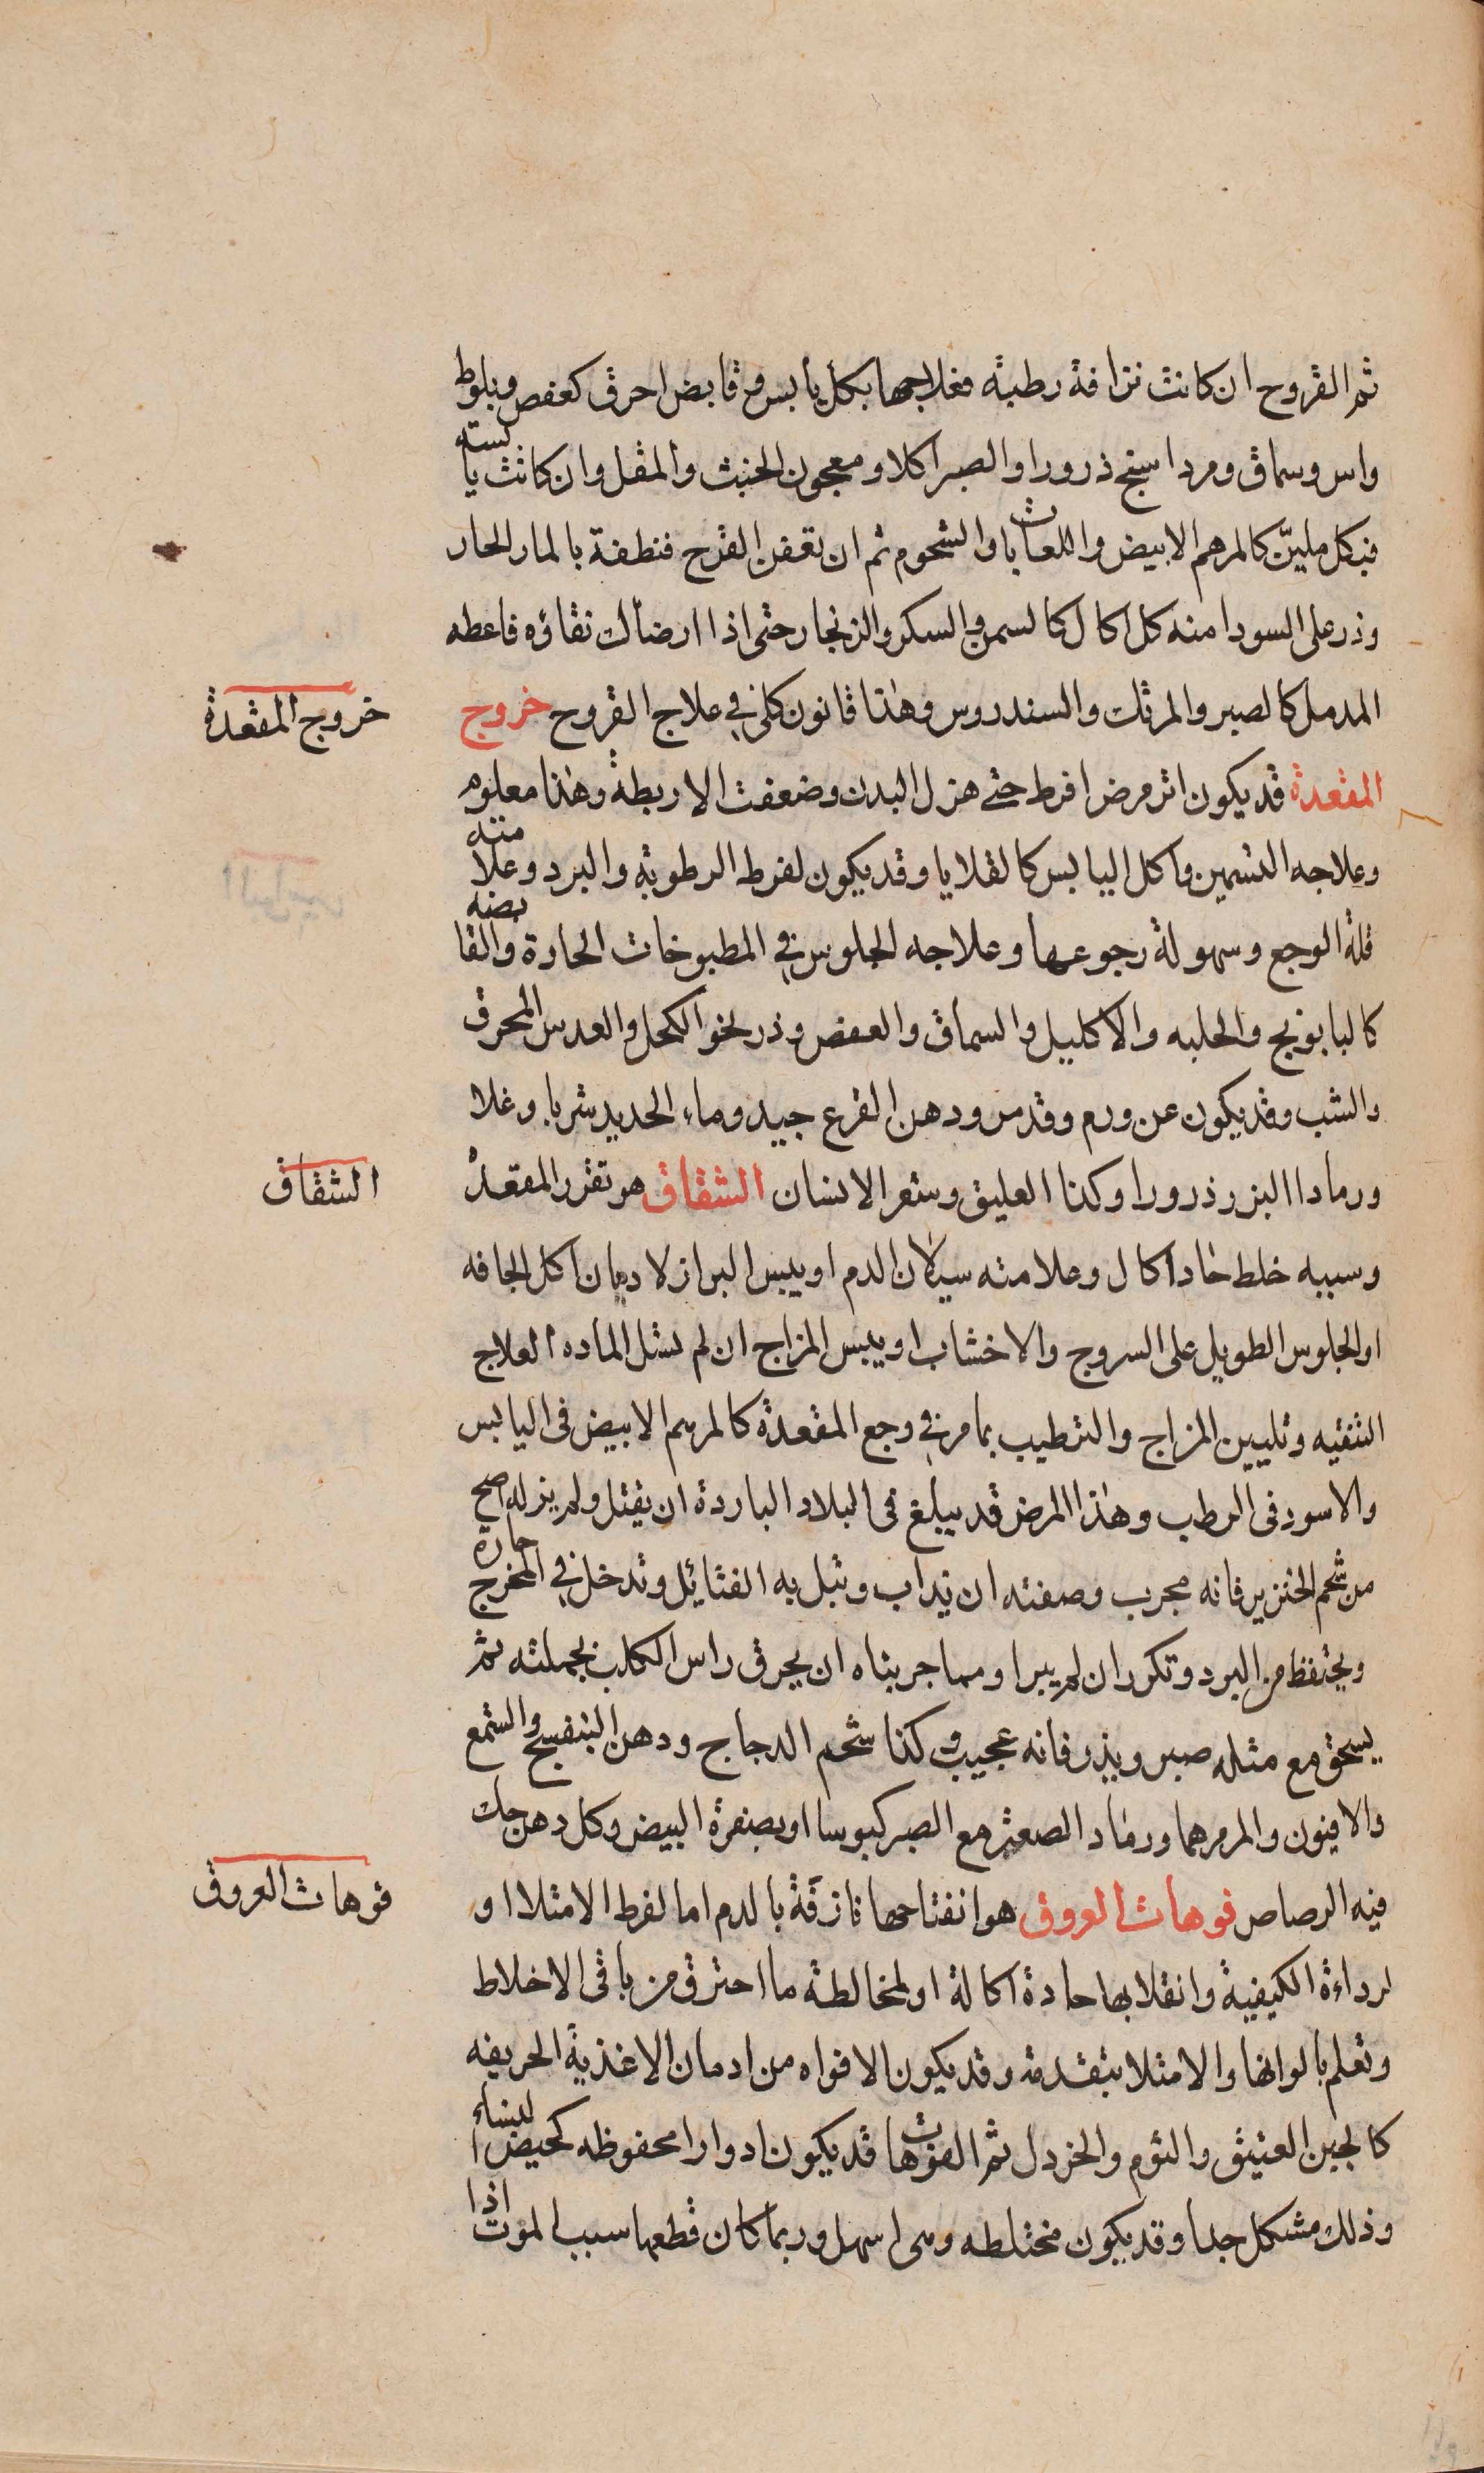 ثم القروح ان كانت نزافة رطبة فعلاجها بكل يابس وقابض احرق كعفص وبلوط
واس وسماق ومرداسنج ذرورا والصبر اكلا ومعجون الخبث والمقل وان كانت يابسته
فبكل مليّن كالمرهم الابيض واللعابات والشحوم ثم ان تعفن القرح فنظفة بالمار الحار
وذر على السودا منه كل اكال كالسمن والسكر والزنجار حتى اذا ارضاك نقاؤه فاعطه
المدمل كالصبر والمرتك والسندروس وهذا قانون كلي في علاج القروح خروج
خروج المقعدة
المقعدة قد يكون اثر مرض افرط حتى هزل البدن وضعفت الاربطة وهذا معلوم
وعلاجه التسمين واكل اليابس كالقلايا وقد يكون لفرط الرطوبة والبرد وعلامته
قلة الوجع وسهولة رجوعها وعلاجه الجلوس في المطبوخات الحارة والقابضه
كالبابونج والحلبه والاكليل والسماق والعفص وذر نحو الكحل والعدس المحرق
والشب وقد يكون عن ورم وقد مر ودهن القرع جيد وماء الحديد شربا وغلا
ورمادا البزر ذرورا وكذا العليق وشعر الانسان الشقاق هو تقزر المقعدة
الشقاق
وسببه خلط حاد اكال وعلامته سيلان الدم او يبس البراز لادمان اكل الجافه
او الجلوس الطويل على السروج والاخشاب او يبس المزاج ان لم تسل الماده العلاج
التنقيه وتليين المزاج والترطيب بما مر في وجع المقعدة كالمرهم الابيض فى اليابس
والاسود فى الرطب وهذا المرض قد يبلغ فى البلاد الباردة ان يقتل ولم يزله اصح
من شحم الخنزير فانه مجرب وصفته ان يذاب وتبل به الفتائيل وتدخل في المخرج حارة
ويحتفظ من البرد وتكرر ان لم يبرا ومما جربناه ان يحرق راس الكلب بجملته ثم
يسحق مع مثله صبر ويذر فانه عجيب وكذا شحم الدجاج ودهن البنفسج والشمع
والافيون والمرمرهما ورماد الصعتر مع الصبر كبوسا او بصفرة البيض وكل دهن حك
فيه الرصاص فوهات العروق هو انفتاحها نازفة بالدم اما لفرط الامتلا او
فوهات العروق
لرداءة الكيفية وانقلابها حادة اكالة او لمخالطة ما احترق من باقى الاخلاط
وتعلم بالوانها والامتلا بتقدمه وقد يكون الافواه من ادمان الاغذية الحريفه
كالجبن العتيق والثوم والخردل ثم الفوهات قد يكون ادوارا محفوظه كحيض النساء
وذلك مشكل جدا وقد يكون مختلطه وهى اسهل وربما كان قطعها سبب الموت اذا